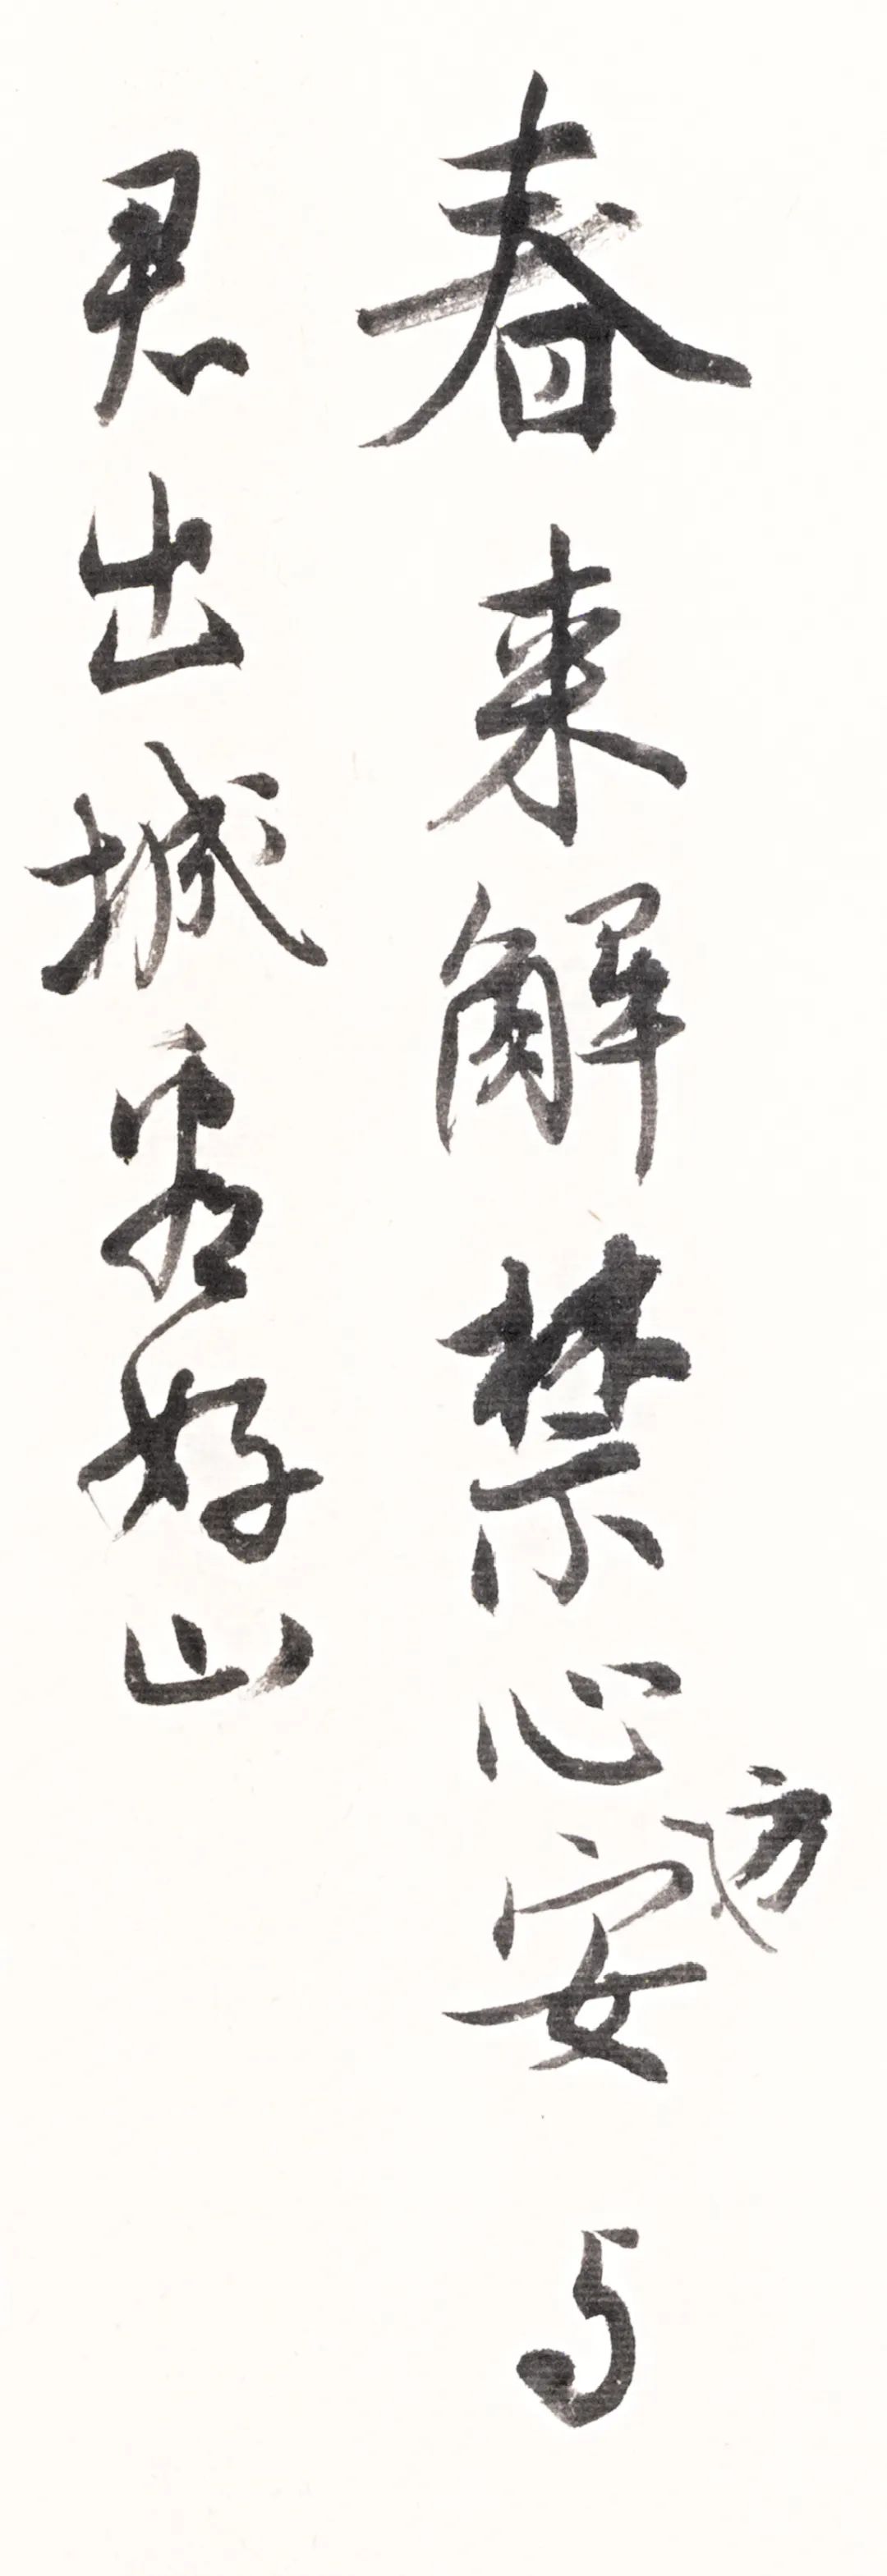 春来解禁心方安与
君出城好山